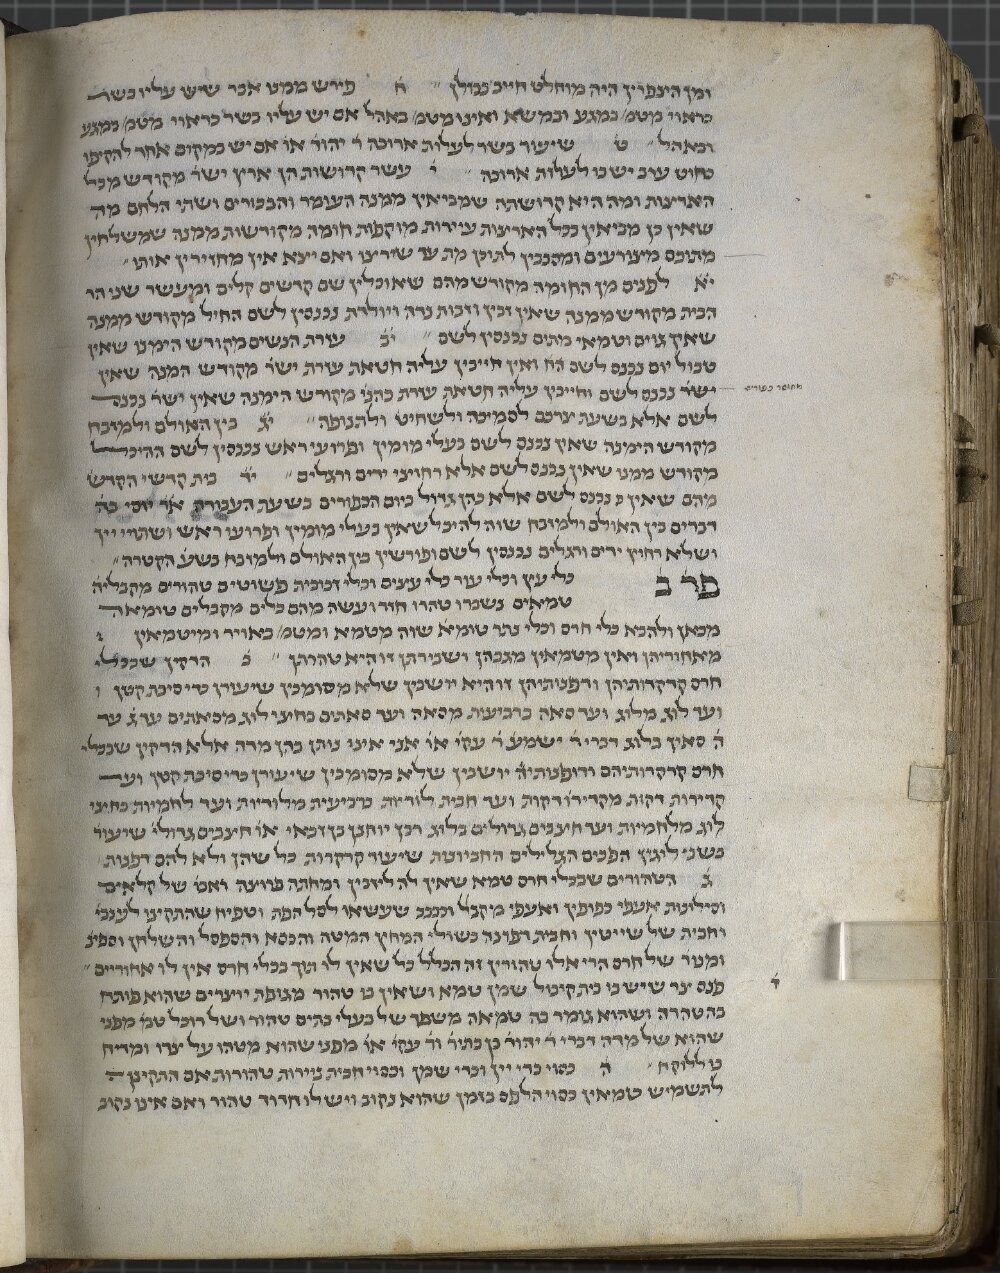 ומן הינפריץ היה מוחלט חייב בכולן ״ ח פירש ממנו אבר שיש עליו בשר
כראוי מטמ׳ במגע ובמשא ואינו מטמ׳ באהל אם יש עליו בשר כראוי מטמ׳ במגע
ובאהל ״ ט שיעור בשר לעלות ארוכה ר׳ יהוד׳ או׳ אם יש במקום אחד להקיפו
בחוט ערב יש בו לעלות ארוכה ״ י עשר קדושות הן ארץ ישר׳ מקודש מכל
הארצות ומה היא קדושתה שמביאין ממנה העומר והבכורים ושתי הלחם מה
שאין כן מביאין בכל הארצות עיירות מוקפות חומה מקודשות ממנה שמשלחין
מתוכם מצורעים ומסבבין לתוכן מת עד שירצו ואם יצא אין מחזירין אותו ״
יא לפנים מן החומה מקודש מהם שאוכלין שם קדשים קלים ומעשר שני הר
הבית מקודש ממנה שאין זבין וזבות נדה ויולדת נכנסין לשם החיל מקודש ממנה
שאין גוים וטמאי מתים נכנסין לשם ״ יב עזרת הנשים מקודש הימנו שאין
טבול יום נכנס לשם ואין חייבין עליה חטאת עזרת ישר׳ מקודש המנה שאין
ישר׳ נכנס לשם וחייבין עליה חטאת עזרת כהני׳ מקודש הימנה שאין ישר׳ נכנס
לשם אלא בשעת צרכם לסמיכה ולשחיט׳ ולתנופה ״ יג בין האולם ולמזבח
מקודש הימנה שאין נכנס לשם בעלי מומין ופרועי ראש נכנסין לשם ההיכל
מקודש ממנו שאין נכנס לשם אלא רחוצי ידים ורגלים ״ יד בית קדשי הקדש
מהם שאין נכנס לשם אלא כהן גדול ביום הכפורים בשעת העבודה א׳ר יוסי בה
דברים בין האולם ולמזבח שוה להיכל שאין בעלי מומין ופרועי ראש ושתויי יין
ושלא רחוץ ידים ורגלים נכנסין לשם ופורשין בין האולם ולמזבח בשע׳ הקטרה ״
פר ב כלי עץ וכלי עור כלי עצים וכלי זכוכית פשוטים טהורים מקבליה
טמאים נשברו טהרו חזר ועשה מהם כלים מקבלים טומאה
מכאן ולהבא כלי חרס וכלי נתר טומא׳ שוה מטמא ומטמ׳ באויר ומיטמאין
מאחוריהן ואין מטמאין מגבהן ושבירתן זו היא טהרתן ״ ב הדקין שבכלי
חרס קרקרותיהן ודפנותיהן יושבין שלא מסומכין שיעורן כדי סיכת קטן ו
ועד לוג מלוג ועד סאה ברביעית מסאה ועד סאתים בחצי לוג מסאתים ועד ג׳ עד
ה׳ סאין בלוג דברי ר׳ ישמע׳ ר׳ עקי׳ או׳ אני איני נותן בהן מדה אלא הדקין שבכלי
חרס קרקרותיהם ודופנותיה׳ יושבין שלא מסומכין שיעורן כדי סיכת קטן ועד
קדירות דקות מקדירו׳ דקות ועד חבית לודיות ברביעית מלודיות ועד לחמיות בחצי
לוג מלחמיות ועד חצבים גדולים בלוג רבן יוחנן בן זכאי או׳ חצבים גדולי׳ שיעור׳
בשני לוגין הפכים הגלילים החביונות שיעור קרקרות כל שהן ולא להם דפנות
ג הטהורים שבכלי חרס טבלא שאין לה ליזבין ומחתה פרוצה ואב׳ של קלאים
וסילונות אעפ׳ כפופין ואעפ׳ מקבל׳ וכבכב שעשאו לסל הפת וטפיח שהתקינו לענבי׳
וחבית של שייטין וחבית דפונה בשולי המחץ המטה והכסא והספסל והשלחן וספינ׳
ומנור׳ של חרס הרי אלו טהורין זה הכלל כל שאין לו תוך בכלי חרס אין לו אחורים ״
ד פנס יצר שיש בו בית קיבול שמן טמא ושאין בו טהור מגופת יוצרים שהוא פותח
בה טהורה ושהוא גומר בה טמאה משפך של בעלי בתים טהור ושל רוכל טמ׳ מפני
שהוא של מדה דברי ר׳ יהוד׳ בן בתיר׳ ור׳ עקי׳ או׳ מפני שהוא מטהו על יצדו ומריח
בו ללוקח ״ ה כסוי כדי יין וכדי שמן וכסוי חבית ניירות טהורות אם התקינן ה
לתשמיש טמאין כסוי הלפס בזמן שהוא נקוב ויש לו חדוד טהור ואם אינו נקוב